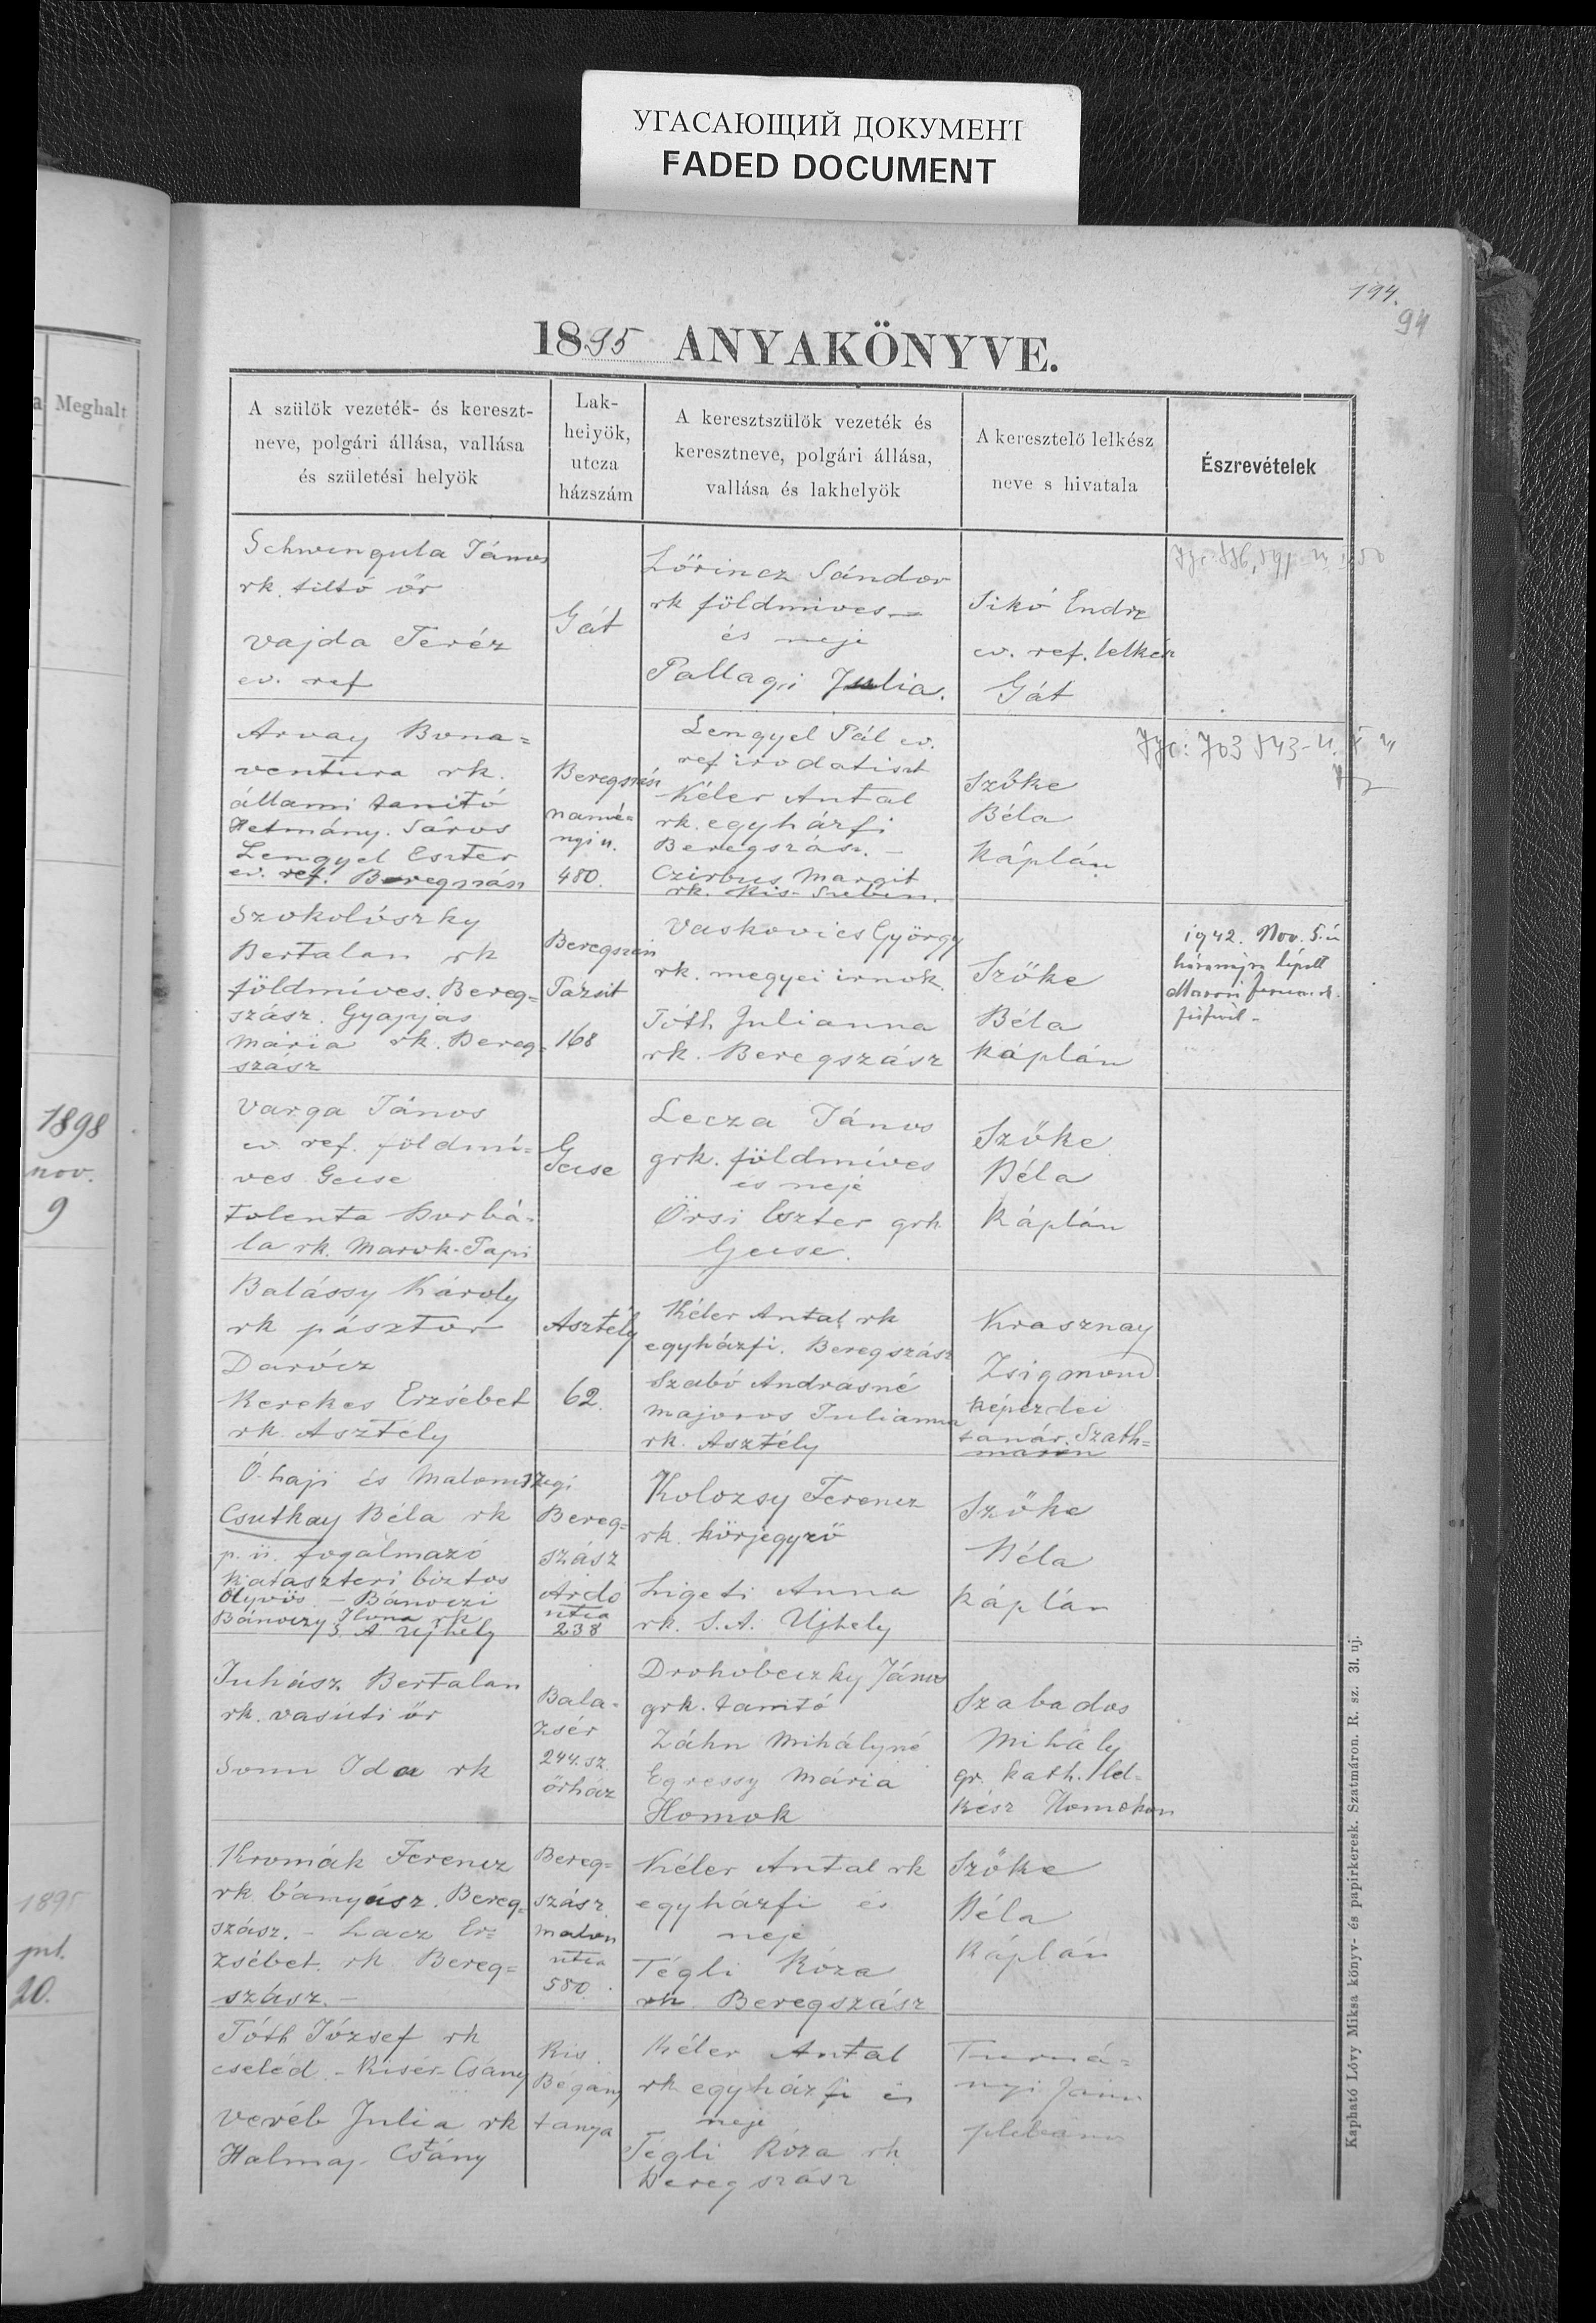 УГАСАЮЩИЙ ДОКУМЕНТ
FADED DOCUMENT
194.
94
1895 ANYAKÖNYVE.
a Meghalt
1898
nov.
9
1895
jul.
20.
A szülök vezeték- és kereszt-
neve, polgári állása, vallása
és születési helyök
Lak-
helyök,
utcza
házszám
A keresztszülök vezeték és
keresztneve, polgári állása,
vallása és lakhelyök
A keresztelő lelkész
neve s hivatala
Észrevételek
Schwingula János
rk. tiltó őr
Vajda Teréz
ev. ref
Gát
Lőrincz Sándor
rk földmives
és neje
Pallagi Julia.
Sikó Endre
ev. ref. lelkész
Gát
Arvay Bona=
ventura rk.
állami tanitó
Hetmány. Sáros
Lengyel Eszter
ev. ref. Beregszász
Beregszász
namé=
nyi u.
480.
Lengyel Pál ev.
ref irodatiszt
Kéler Antal
rk. egyházfi
Beregszász. -
Czirbus Margit
rk. Kis-
Szőke
Béla
Káplán
703 543
Szokolószky
Bertalan rk
földmíves. Bereg=
szász. Gyapjas
Mária rk. Bereg=
szász
Beregszász
Tázsit
168
Vaskovics György
rk. megyei irnok.
Tóth Julianna
rk. Beregszász
Szőke
Béla
Káplán
1942. Nov. 5.én
házasságra lépett
Varga János
ev ref. földmí=
ves Gecse
Tolenta Borbá=
la rk. Marok-Papi
Gecse
Lecza János
grk. földmíves
és neje
Örsi Eszter grk
Gecse.
Szőke
Béla
Káplán
Balássy Károly
rk pásztor
Darócz
Kerekes Erzsébet
rk. Asztély
Asztély
62.
Kéler Antal rk
egyházfi. Beregszász
Szabó Andrásné
Majoros Julianna
rk. Asztély
Krasznay
Zsigmond
képezdei
tanár. Szath=
máron
Ó-haji és Malomszegi
Csuthay Béla rk
p. ü. fogalmazó
Kataszteri biztos
Ölyvös. - Bánóczi
Bánóczy Ilona rk
S. A Ujhely
Bereg=
szász
Ardo
utca
238
Kolozsy Ferencz
rk. körjegyző
Ligeti Anna
rk. S.A. Ujhely
Szőke
Béla
Káplán
Juhász Bertalan
rk. vasúti őr
Sonn Ida rk
Bala=
zsér
244. sz.
őrház
Drohobeczky János
grk. tanitó
Záhn Mihályné
Egressy Mária
Homok
Szabados
Mihály
gr. kath. lel=
kész Homokon
Kromák Ferencz
rk. bányász. Bereg=
szász. - Lacz Er=
zsébet. rk Bereg=
szász. -
Bereg=
szász
malom
utca
580.
Kéler Antal rk
egyházfi és
neje
Tégli Róza
rk. Beregszász
Szőke
Béla
Káplán
Tóth József rk
cseléd - Kisér-Csány
Veréb Julia rk
Halmaj-Csány
Kis
Begány
tanya
Kéler Antal
rk egyházfi és
neje
Tegli Róza rk
Beregszász
plébános
Kapható Lővy Miksa könyv- és papirkeresk. Szatmáron. R. sz. 31. uj.